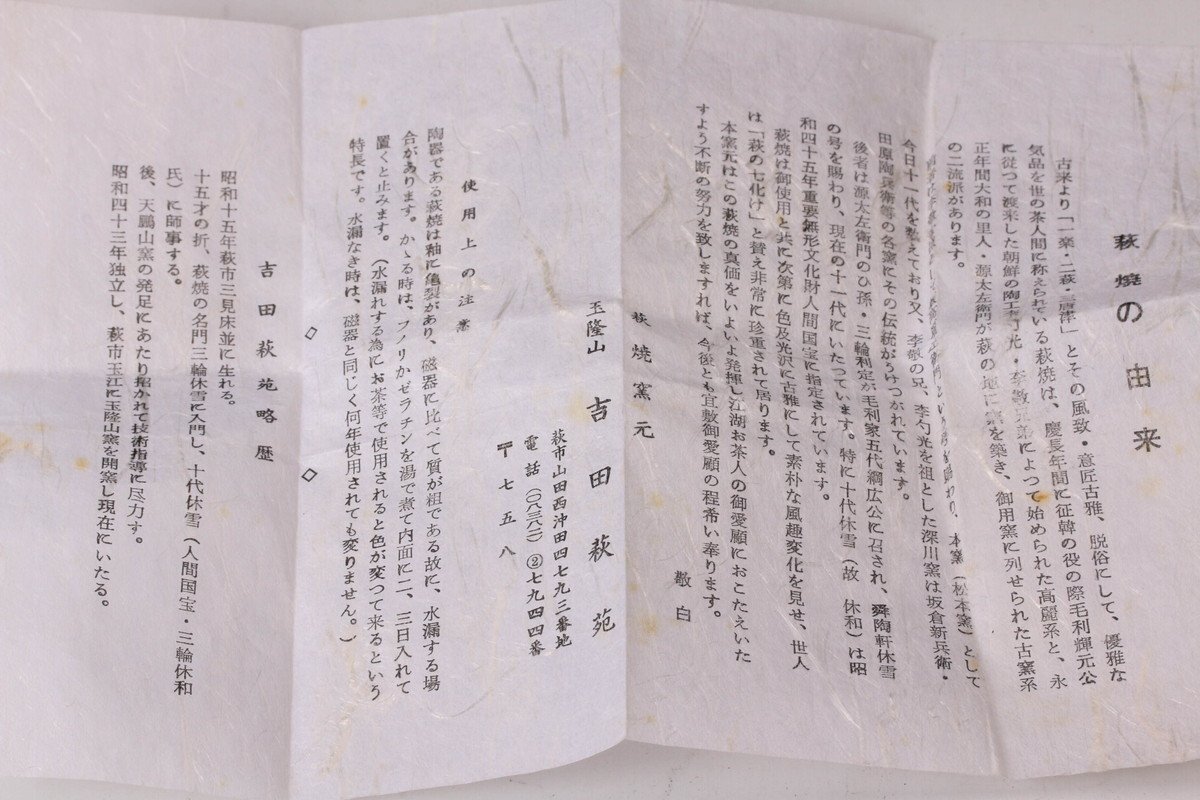 萩焼の由来
古来より「一楽・二萩・三唐津」とその風致・意匠古雅、脱俗にして、優雅な
気品を世の茶人間に称えられている萩焼は、慶長年間に征韓の役の際毛利輝元公
に従つて渡来した朝鮮の陶工李勺光・李敬兄弟によつて始められた高麗系と、永
正年間大和の里人・源太左衛門が萩の地に窯を築き、御用窯に列せられた古窯系
の二流派があります。
本窯(松本窯)として
今日十一代を数えており又、李敬の兄、李勺光を祖とした深川窯は坂倉新兵衛・
田原陶兵衛等の名窯にその伝統がうけつがれています。
後者は源太左衛門のひ孫・三輪利定が毛利家五代綱広公に召され、舜陶軒休雪
の号を賜わり、現在の十一代にいたつています。特に十代休雪(故 休和)は昭
和四十五年重要無形文化財人間国宝に指定されています。
萩焼は御使用と共に次第に色及光沢に古雅にして素朴な風趣変化を見せ、世人
は「萩の七化け」と賛え非常に珍重されて居ります。
本窯元はこの萩焼の真価をいよいよ発揮し江湖お茶人の御愛顧におこたえいた
すよう不断の努力を致しますれば、今後とも宜敷御愛顧の程希い奉ります。
敬白
萩焼窯元
玉隆山 吉田萩苑
萩市山田西沖田四七九三番地
電話(〇八三八二)②七九四四番
〒七五八
使用上の注意
陶器である萩焼は釉に亀裂があり、磁器に比べて質が粗である故に、水漏する場
合があります。かゝる時は、フノリかゼラチンを湯で煮て内面に二、三日入れて
置くと止みます。(水漏れする為にお茶等で使用されると色が変つて来るという
特長です。水漏なき時は、磁器と同じく何年使用されても変りません。)
◇ ◇
吉田萩苑略歴
昭和十五年萩市三見床並に生れる。
十五才の折、萩焼の名門三輪休雪に入門し、十代休雪(人間国宝・三輪休和
氏)に師事する。
後、天鵬山窯の発足にあたり招かれて技術指導に尽力す。
昭和四十三年独立し、萩市玉江に玉隆山窯を開窯し現在にいたる。